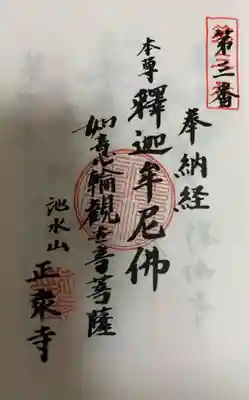 第三番
奉納経
本尊 釋迦牟尼佛
如意輪觀世音菩薩
池水山 正乘寺